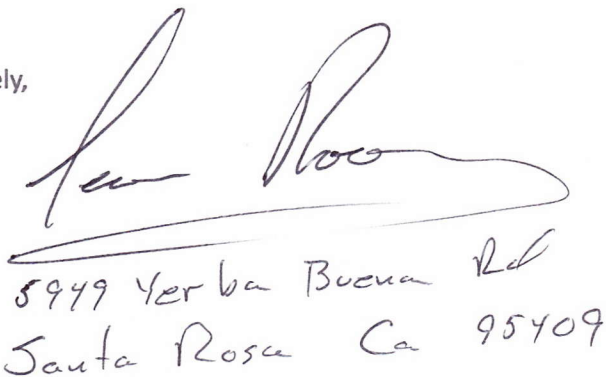 ely,
5949 Yerba Buena Rd
Santa Rosa Ca 95409